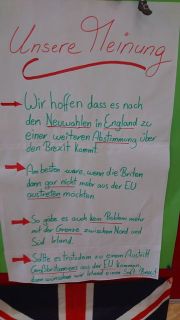 Unsere Meinung
Wir hoffen dass es nach
den Neuwahlen in England zu
einer weiteren Abstimmung über
den Brexit kommt.
Am besten wäre, wenn die Briten
dann gar nicht mehr aus der EU
austreten möchten
So gäbe es auch kein Problem mehr
mit der Grenze zwischen Nord und
Süd Irland.
Sollte es trotzdem zu einem Austritt
Großbritanniens aus der EU kommen,
dann wünschen wir Irland einen Soft Brexit